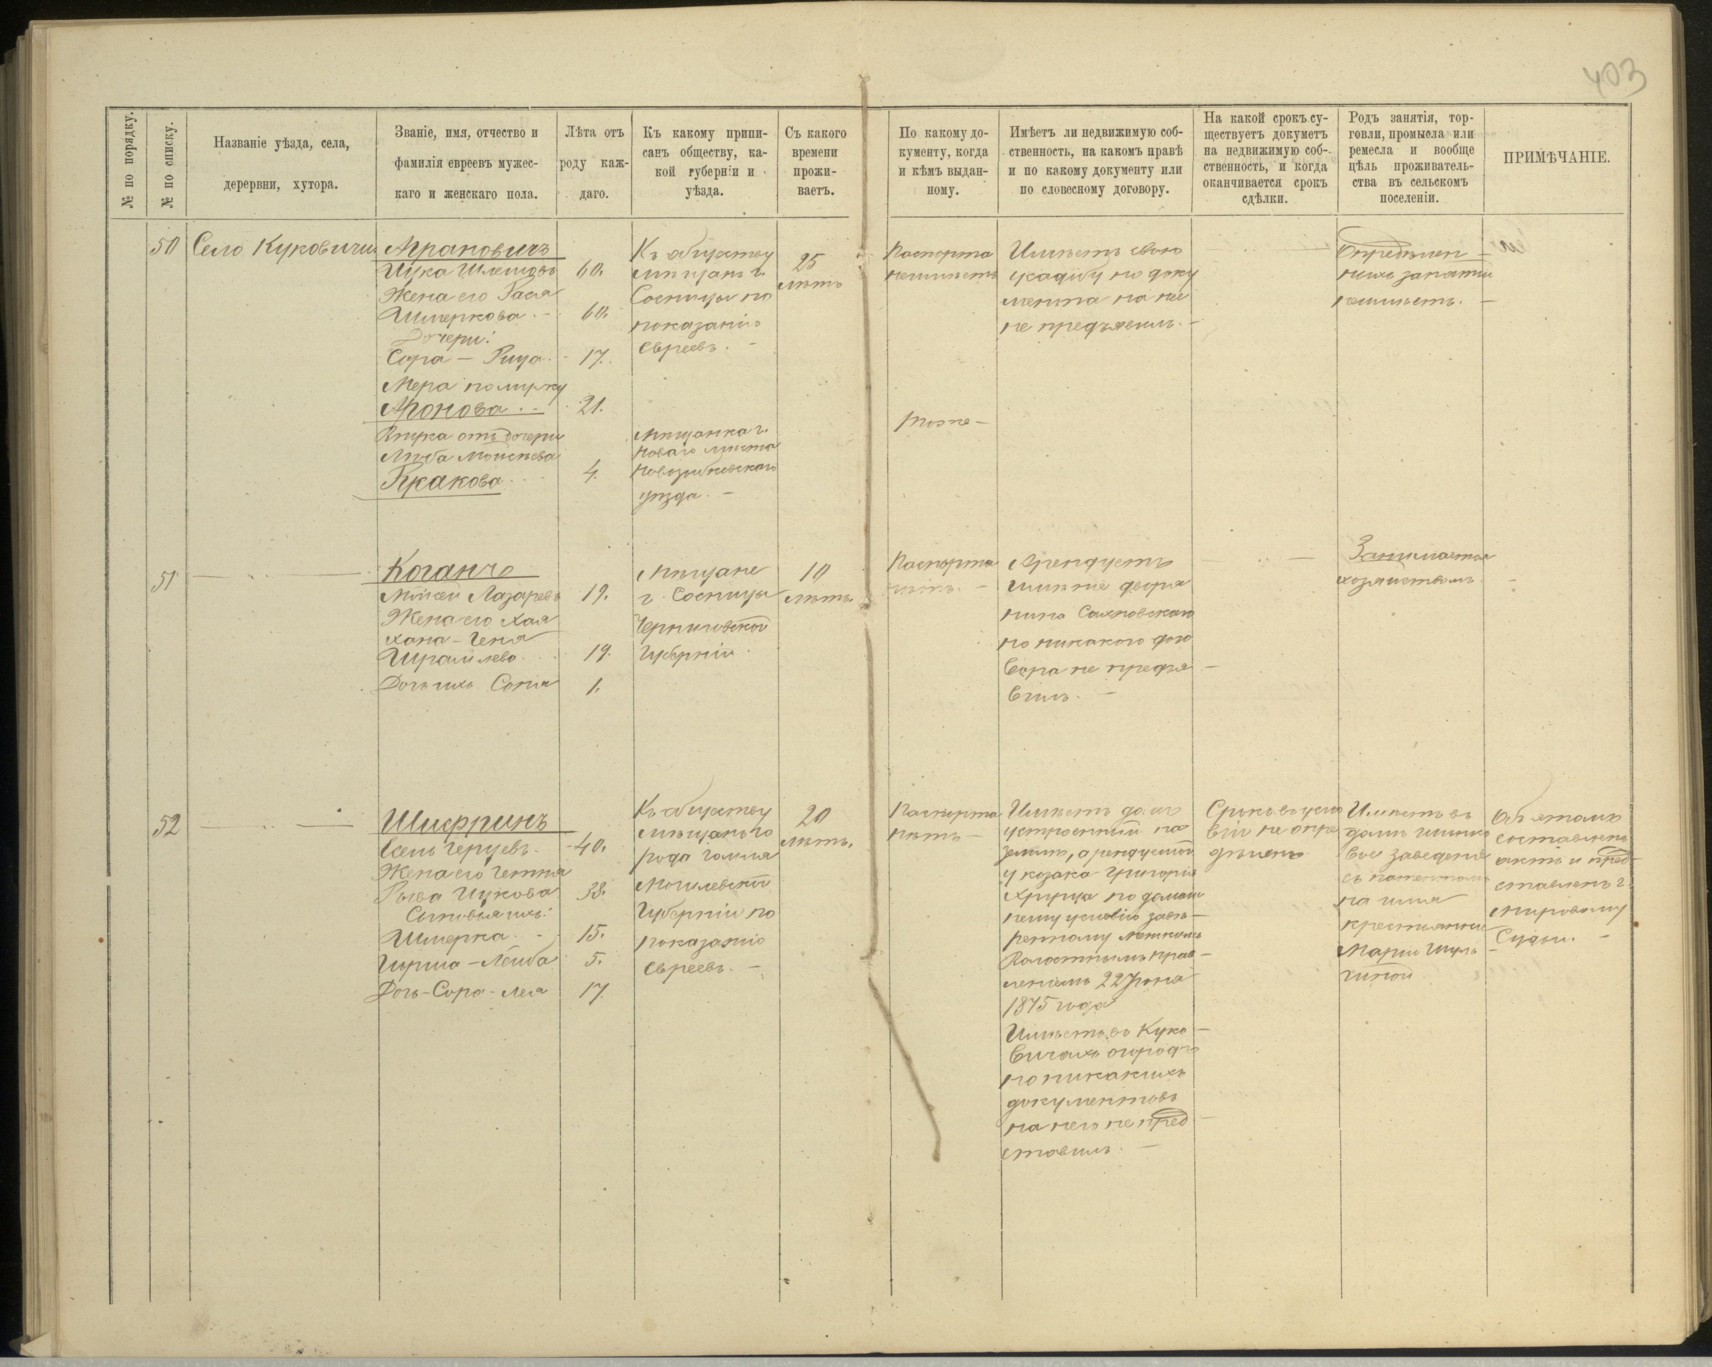 403
№ по порядку.
№ по списку.
Названіе уѣзда, села,
дерервни, хутора.
Званіе, имя, отчество и
фамилія евреевъ мужес-
каго и женскаго пола.
Лѣта отъ
роду каж-
даго.
Къ какому припи-
санъ обществу, ка-
кой губерніи и
уѣзда.
Съ какого
времени
прожи-
ваетъ.
По какому до-
кументу, когда
и кѣмъ выдан-
ному.
Имѣетъ ли недвижимую соб-
ственность, на какомъ правѣ
и по какому документу или
по словесному договору.
На какой срокъ су-
ществуетъ докуметъ
на недвижимую соб-
ственность, и когда
оканчивается срокъ
сдѣлки.
Родъ занятія, тор-
говли, промысла или
ремесла и вообще
цѣль проживатель-
ства въ сельскомъ
поселеніи.
ПРИМѢЧАНІЕ.
50
Село Куковичи
Аграновичъ
60.
Жена его Рася
Шмеркова
60.
Дочери:
Сора – Рыця
17.
Мера по мужу
Аронова
21.
Внука отъ дочери
Люба Моисѣева
4.
Къ обществу
мѣщанъ г.
Сосницы по
показанію
евреевъ. –
Мѣщанка г.
Новаго мѣста
Новозыбковскаго
уѣзда. –
25
лѣтъ
Паспорта
неимѣетъ
Тоже –
Имѣетъ свою
усадьбу но доку
мента на нее
не предъявилъ. –
Опредѣлен –
ныхъ занятій
неимѣетъ. –
51
Коганъ
Мойсей Лазаревъ
19.
Жена его Хая
Хана – Геня
19.
Дочь ихъ Соня
1.
Мѣщане
г. Сосницы
Черниговской
Губерніи.
10
лѣтъ
Паспорта
нѣтъ. –
Арендуетъ
имѣніе дворя
нина Сахновскаго
но никакого дого
вора не предъя –
вилъ. –
Занимается
хозяйствомъ.
52
Шифринъ
40.
38.
Сыновья ихъ:
Шмерка
15.
Гирша – Лейба
5.
Дочь – Сора – Лея
17.
Къ обществу
мѣщанъ го
рода Гомля
Могилевской
Губерніи по
показанію
евреевъ. –
20
лѣтъ.
Паспорта
нѣтъ –
Имѣетъ домъ
устроенный на
землѣ, арендуемой
у козака Григорія
по домаш
нему условію завѣ –
ренному
Волостнымъ прав –
леніемъ 22 Іюня
1875 года
Имѣетъ въ Куко –
вичахъ огородъ
но никакихъ
документовъ
на него не пред –
ставилъ. –
Срокъ въ усло
віи не опре
дѣленъ
Имѣетъ въ
домѣ шинко
вое заведеніе
съ патентомъ
на имя
крестьянки
Маріи Шуль –
гиной
Объ этомъ
составленъ
актъ и пред –
ставленъ г.
мировому
Судьи. –